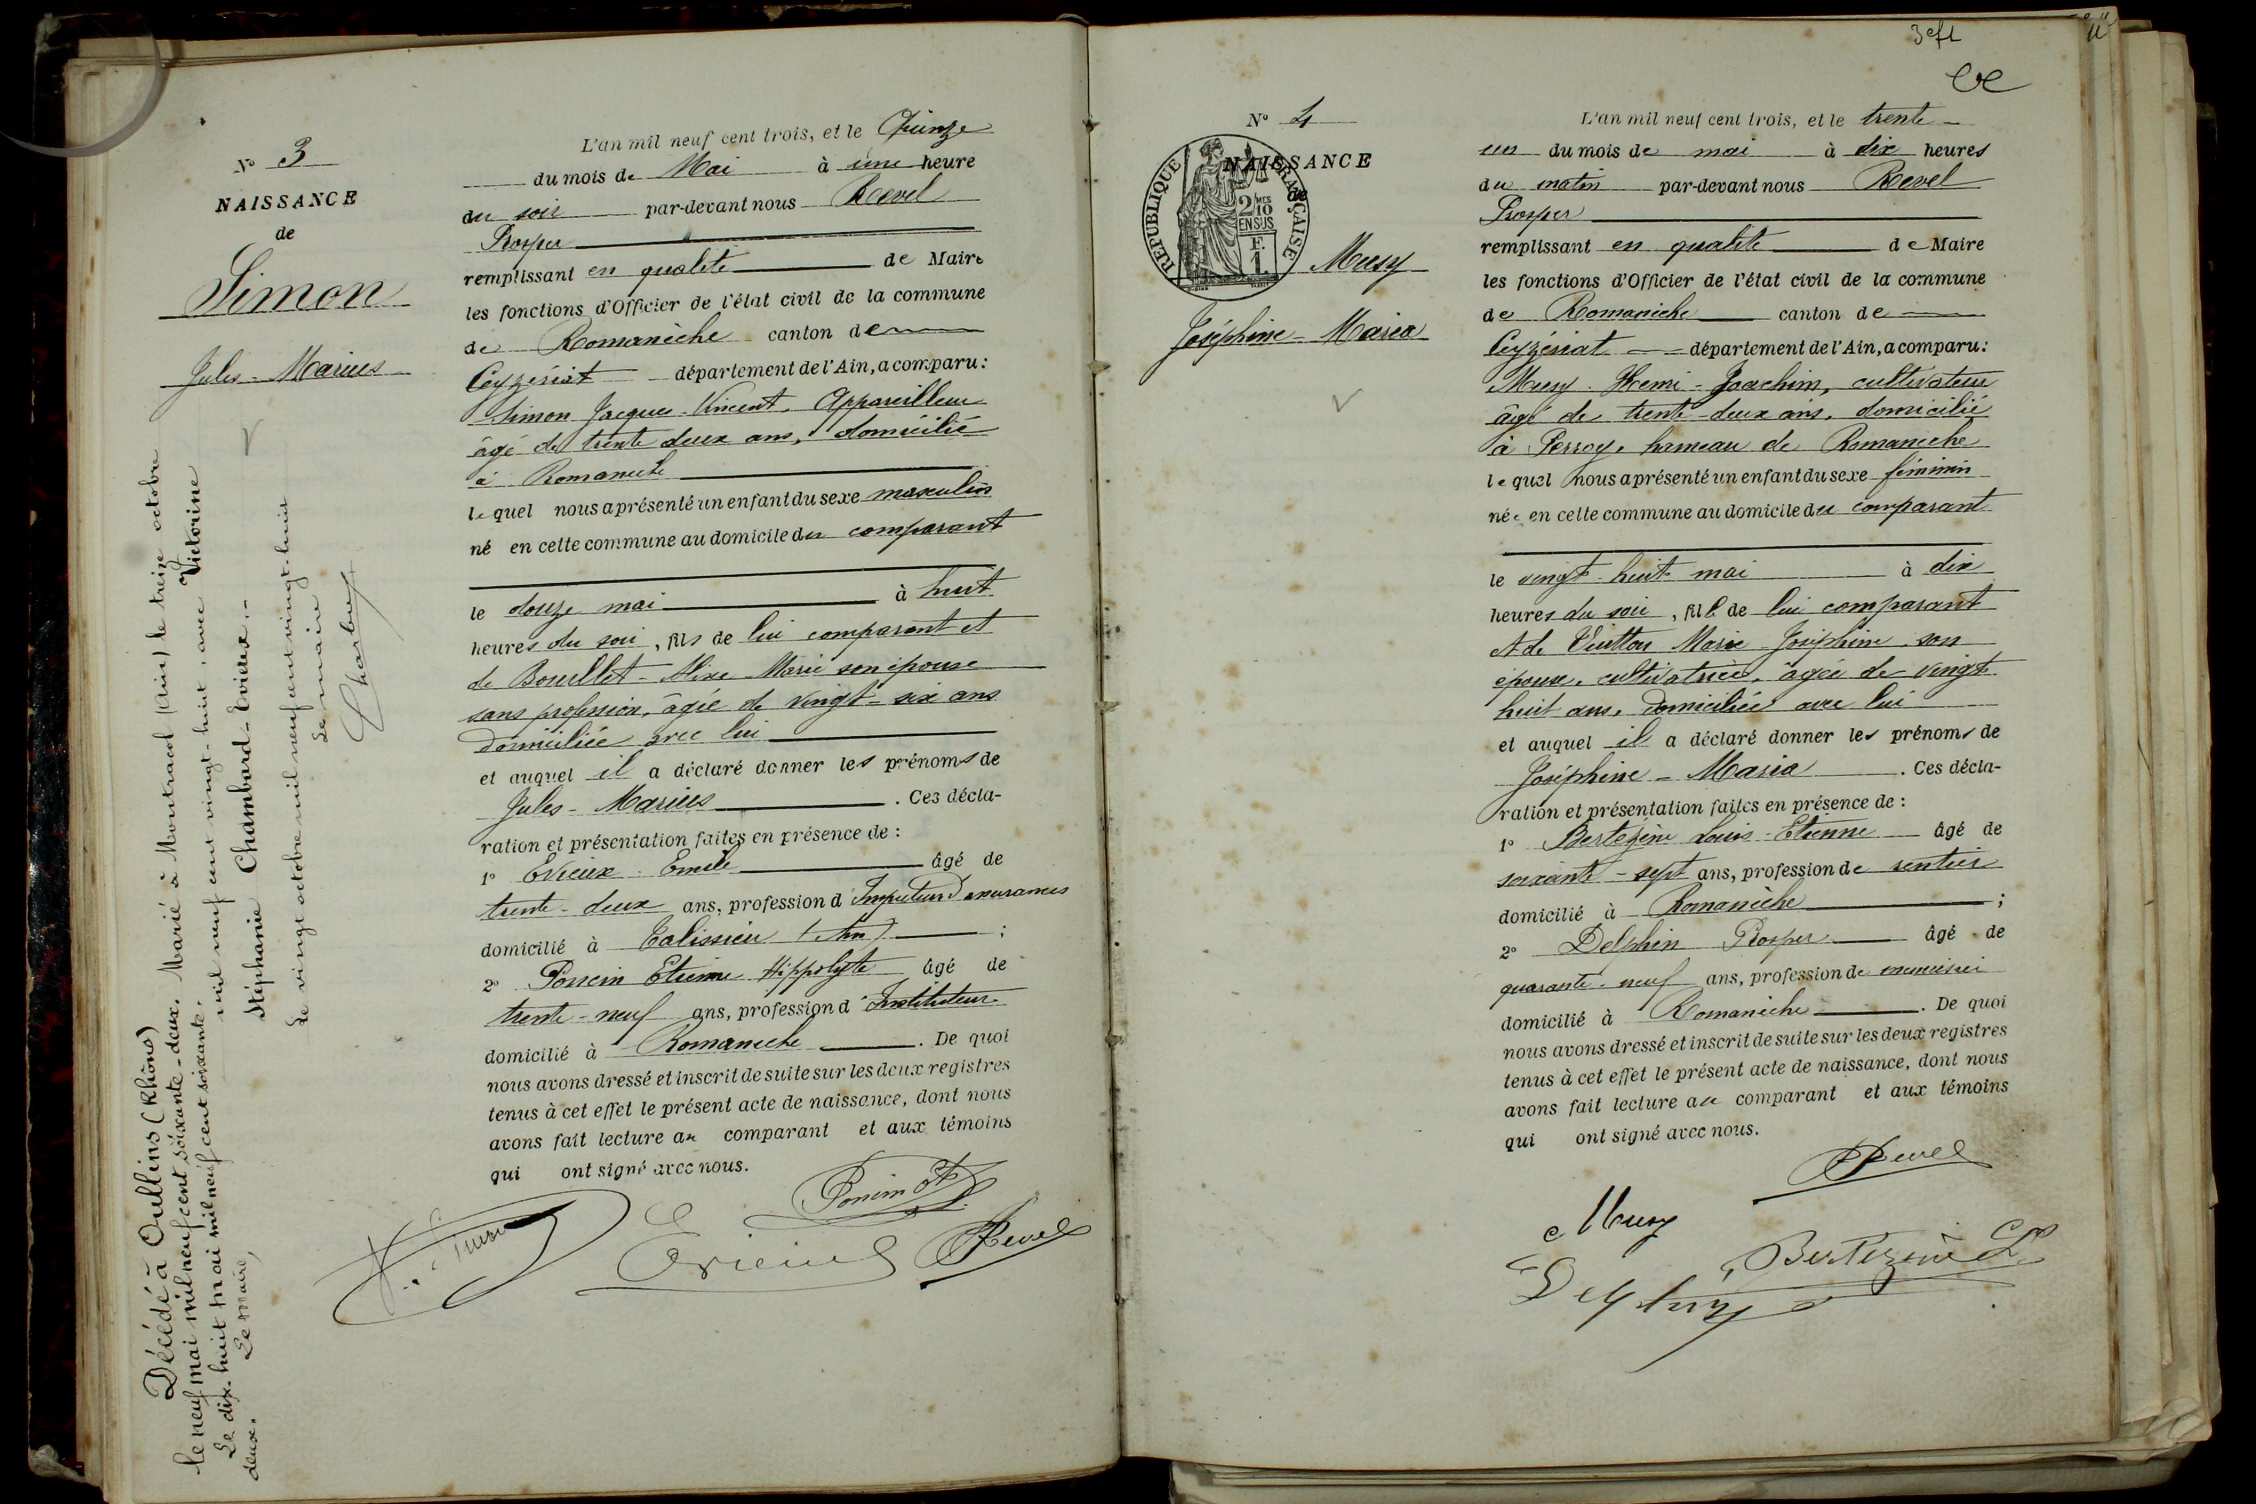 N° 3
NAISSANCE
de
Simon
Jules - Marius
Marié à Montracol (Ain) le treize octobre
mil neuf cent vingt-huit, avec Victorine
Stéphanie Chambard-Evieux.-
Le vingt octobre mil neuf cent vingt-huit
Le maire
Décédé à Oullins (Rhône)
le neuf mai mil neuf cent soixante-deux.
Le dix-huit mai mil neuf cent soixante-
deux. Le maire,
L'an mil neuf cent trois, et le Quinze
du mois de Mai à une heure
du soir par-devant nous Revel
Prosper
remplissant en qualité de Maire
les fonctions d'Officier de l'état civil de la commune
de Romanèche canton de
Ceyzériat département de l'Ain, a comparu:
Simon Jacques-Vincent, Appareilleur
âgé de trente deux ans, domicilié
à Romanèche
lequel nous a présenté un enfant du sexe masculin
né en cette commune au domicile du comparant
le douze mai à huit
heures du soir, fils de lui comparant et
de Bourllet - Marie son épouse
sans profession, âgée de vingt-six ans
domiciliée avec lui
et auquel il a déclaré donner les prénoms de
Jules - Marius. Ces décla-
ration et présentation faites en présence de:
1° Evieux Emile âgé de
trente-deux ans, profession d'Inspecteur d'assurances
domicilié à Talissieu (Ain);
2° Poncin Etienne Hippolyte âgé de
trente-neuf ans, profession d'Instituteur
domicilié à Romanèche. De quoi
nous avons dressé et inscrit de suite sur les deux registres
tenus à cet effet le présent acte de naissance, dont nous
avons fait lecture au comparant et aux témoins
qui ont signé avec nous.
Poncin Et
Evieux PRevel
3e f1
N° 4
NAISSANCE
de
REPUBLIQUE FRANÇAISE
2/10 MES
EN SUS
F.
1.
Muzy
Joséphine - Maria
L'an mil neuf cent trois, et le trente-
un du mois de mai à dix heures
du matin par-devant nous Revel
Prosper
remplissant en qualité de Maire
les fonctions d'Officier de l'état civil de la commune
de Romanèche canton de
Ceyzériat département de l'Ain, a comparu:
Muzy Henri-Joachim, cultivateur
âgé de trente-deux ans, domicilié
à Perroy, hameau de Romanèche
lequel nous a présenté un enfant du sexe féminin
née en cette commune au domicile du comparant
le vingt-huit mai à dix
heures du soir, fille de lui comparant
et de Marie Joséphine son
épouse, cultivatrice, âgée de vingt
huit ans, domiciliée avec lui
et auquel il a déclaré donner les prénoms de
Joséphine - Maria. Ces décla-
ration et présentation faites en présence de:
1° Bertezène Louis-Etienne âgé de
soixante-sept ans, profession de rentier
domicilié à Romanèche;
2° Delphin Prosper âgé de
quarante-neuf ans, profession de menuisier
domicilié à Romanèche. De quoi
nous avons dressé et inscrit de suite sur les deux registres
tenus à cet effet le présent acte de naissance, dont nous
avons fait lecture au comparant et aux témoins
qui ont signé avec nous.
PRevel
Muzy
Bertezène L
Delphin